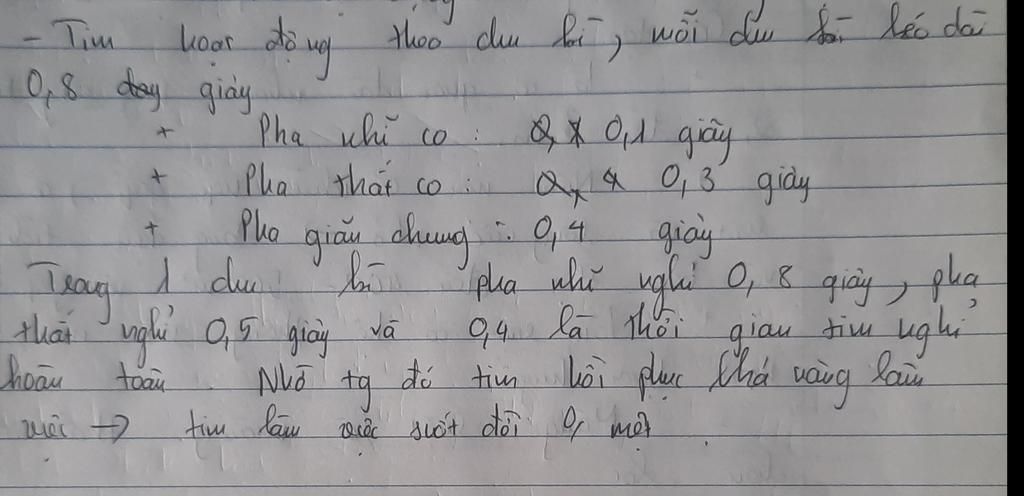 - Tim hoạt động theo chu kì, mỗi chu kì kéo dài
0,8 giây
+ Pha nhĩ co : 0,1 giây
+ Pha thất co : 0,3 giây
+ Pha giãn chung : 0,4 giây
Trong 1 chu kì pha nhĩ nghỉ 0,8 giây, pha
thất nghỉ 0,5 giây và 0,4 là thời gian tim nghỉ
hoàn toàn. Nhờ tg đó tim hồi phục khả năng làm
việc → tim làm việc suốt đời 0, mệt